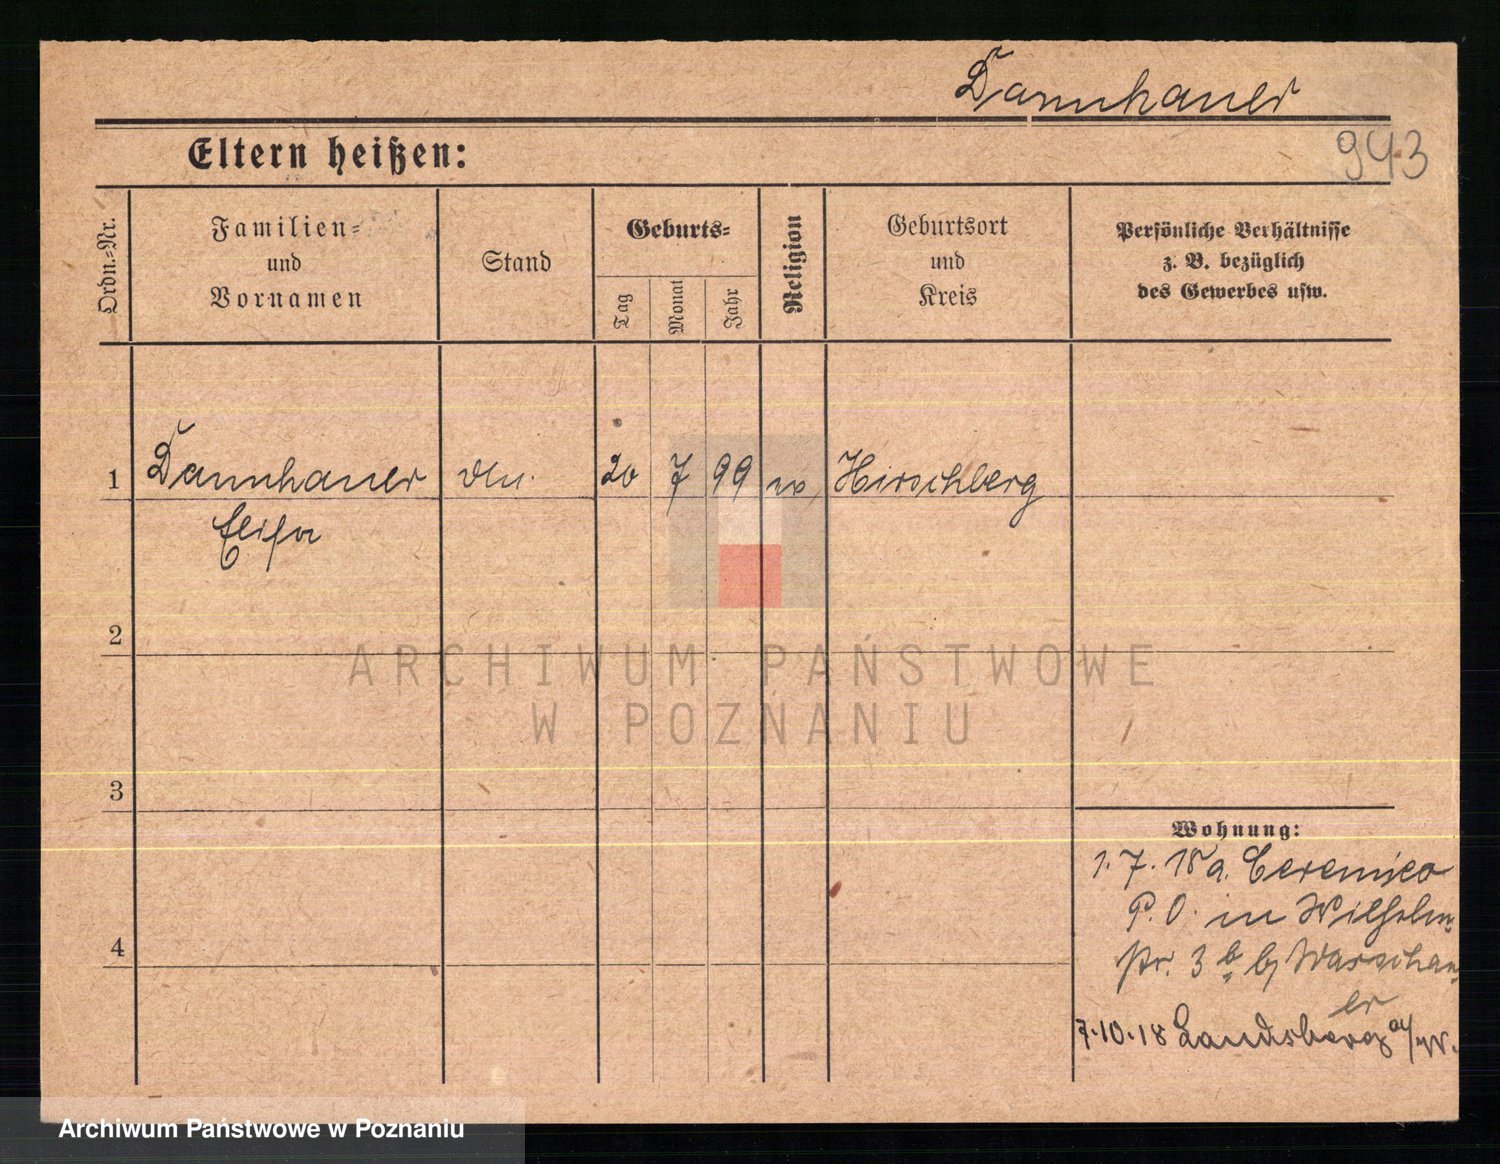 Dannhauer
943
Eltern heißen:
Ordn.-Nr.
Familien-
und
Vornamen
Stand
Geburts-
Tag
Monat
Jahr
Religion
Geburtsort
und
Kreis
Persönliche Verhältnisse
z. B. bezüglich
des Gewerbes usw.
1 Dannhauer 20 7 99 Hirschberg
Elisa
2
3
4
Wohnung:
1. 7. 18 a.
P. O. in Wilhelm
str. 3 b b/ Warschau
er
7.10.18 Landsberg a/W.
ARCHIWUM PAŃSTWOWE
W POZNANIU
Archiwum Państwowe w Poznaniu